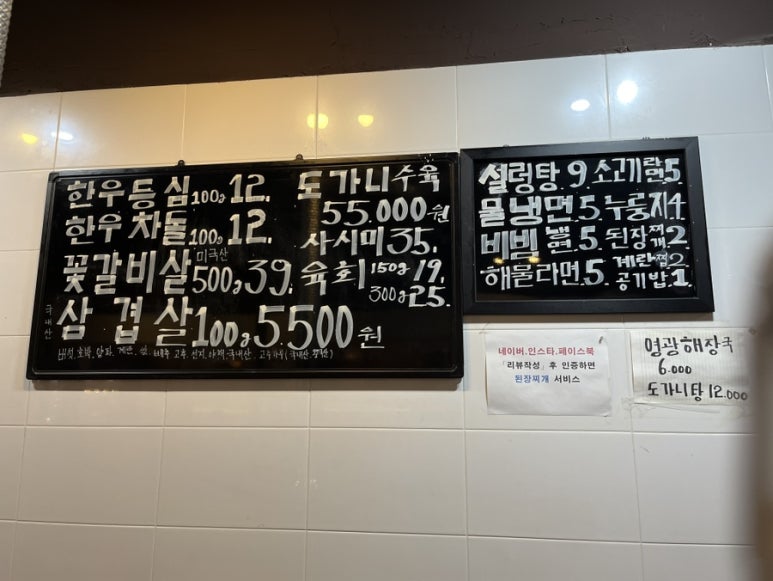 한우등심 100g 12.
한우차돌 100g 12.
미국산
꽃갈비살 500g 39.
국내산
삼겹살 100g 5.500원
도가니수육
55.000원
사시미 35.
육회 150g 19.
300g 25.
설렁탕 9.
물냉면.5.
비빔냉면.5.
해물라면.5.
소고기라면.5
누룽지4
된장찌개 2
계란찜 2
공기밥.1.
네이버.인스타.페이스북
「리뷰작성」 후 인증하면
된장찌개 서비스
영광해장국
6.000
도가니탕 12.000